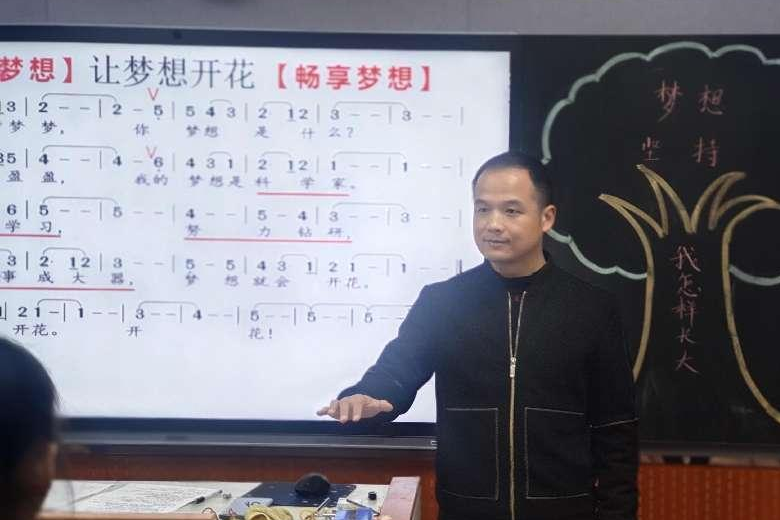 梦想】让梦想开花【畅享梦想】
3 | 2 - - | 2 - 5 | 5 4 3 | 2 12 | 3 - - | 3 - - |
梦 梦， 你 梦想 是 什么？
35 | 4 - - | 4 - 6 | 4 3 1 | 2 12 | 1 - - | 1 - - |
盈 盈， 我的 梦想是科 学家。
6 | 5 - - | 5 - - | 4 - - | 5 - 4 | 3 - - | 3 - - |
学习， 努 力钻研，
2 | 2 12 | 3 - - | 5 - 5 | 4 3 1 | 2 1 - | 1 - - ‖
事 成大器， 梦 想就会 开花。
| 2 1 - | 1 - - | 3 - - | 4 - - | 5 - - | 5 - - | 5 - -
开花。 开 花！
梦想
坚持
我怎样长大